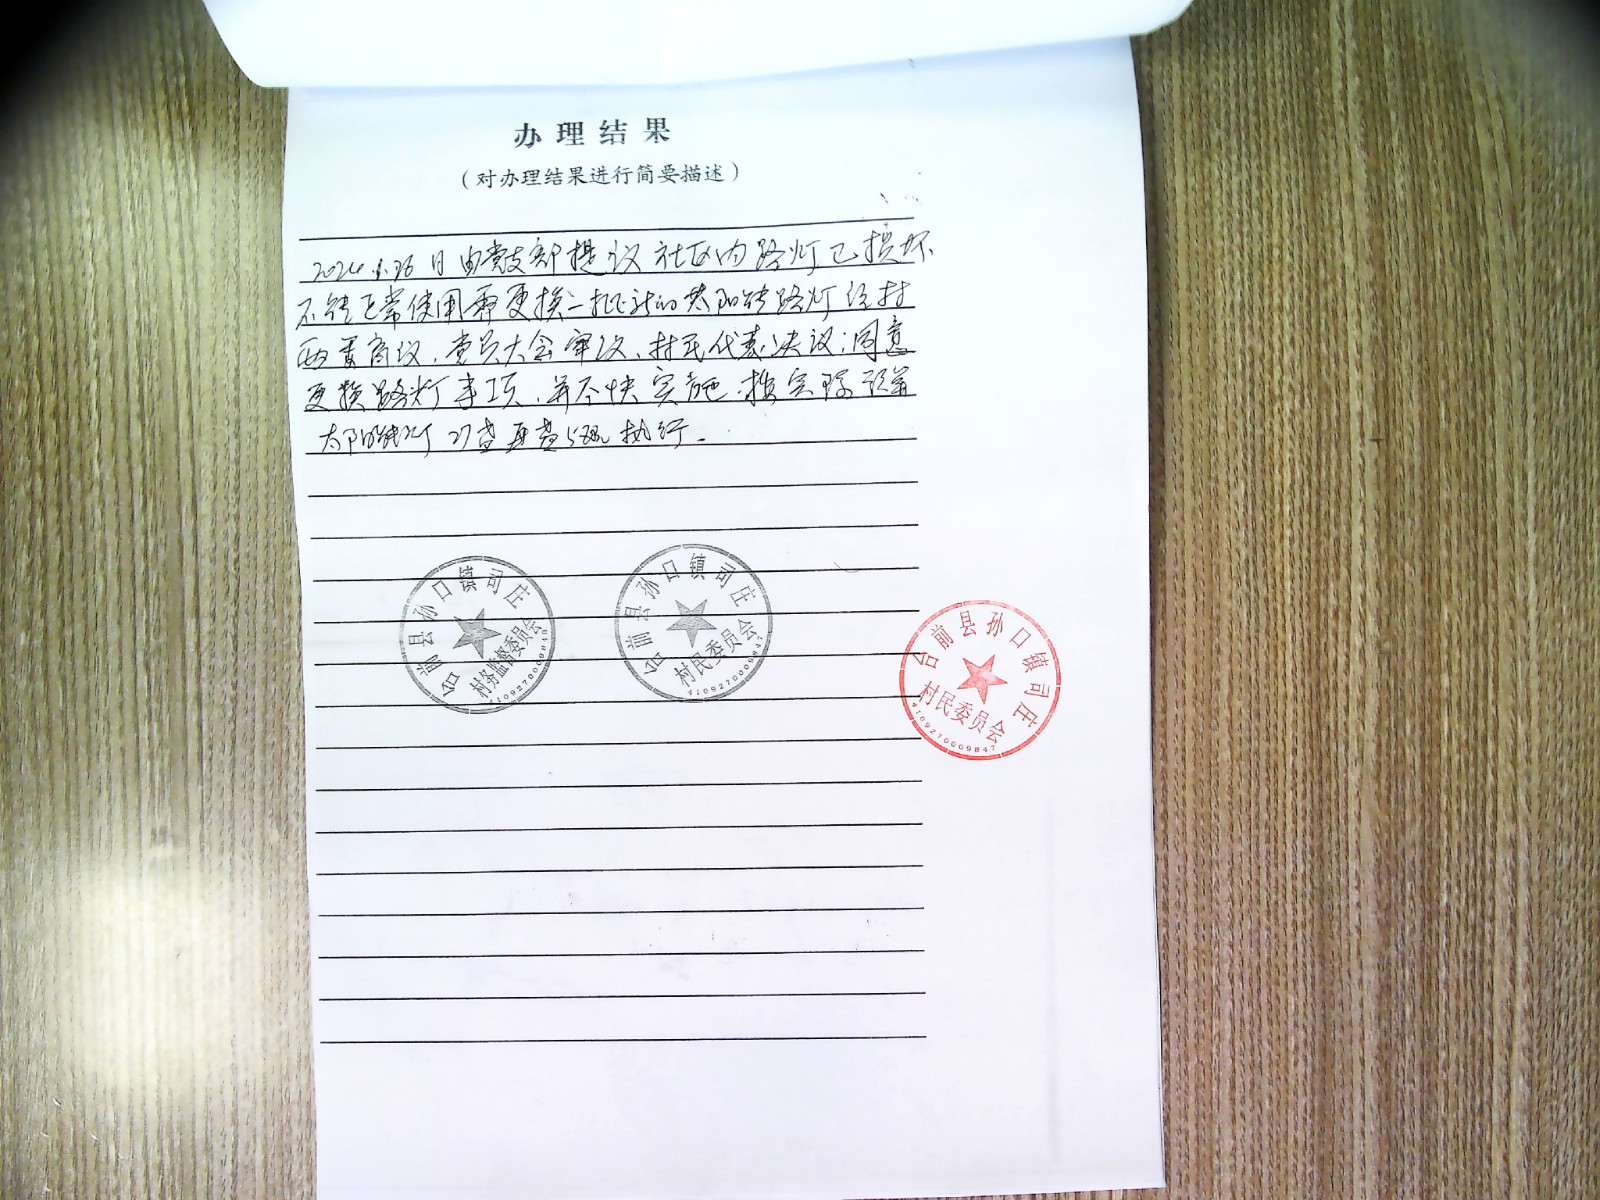 办理结果
（对办理结果进行简要描述）
日由党支部提议社区内路灯已损坏
不能正常使用需更换一批新的太阳能路灯经村
两委商议、党员大会审议、村民代表决议：同意
更换路灯事项，并尽快实施。按实际设算
太阳能灯27盏 执行。
台前县孙口镇司庄
村务监督委员会
台前县孙口镇司庄
村民委员会
4109270009847
台前县孙口镇司庄
村民委员会
4109270009847